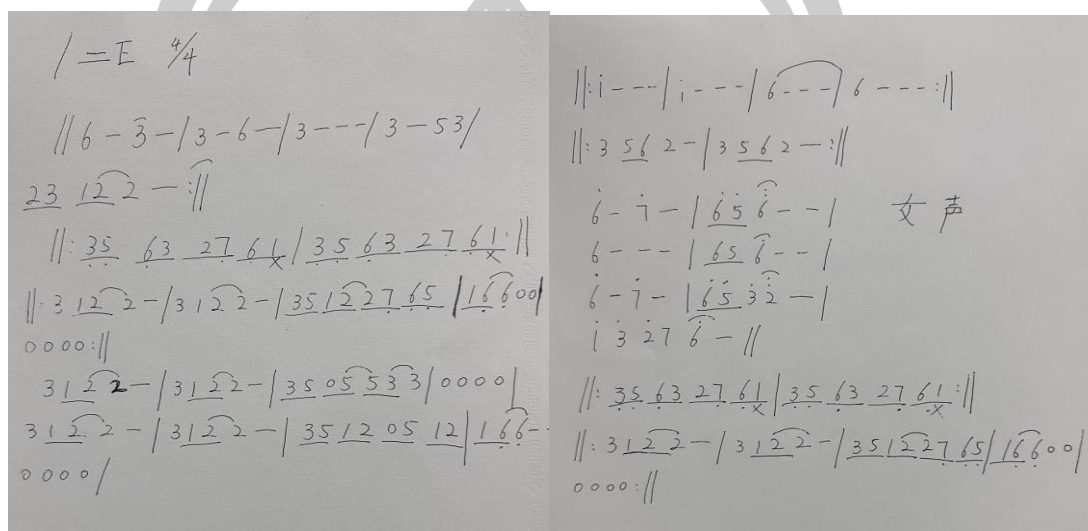 1=E 4/4
||6-3-/3-6-/3---/3-53/
23 122-:||
||:35 63 27 61/35 63 27 61:||
||:3122-/3122-/35122765/16600/
0000:||
3122-/3122-/35055333/0000/
3122-/3122-/35120512/166--
0000/
||:i---/i---/6---/6---:||
||:3 56 2-/3 56 2-:||
6-7-/656--/ 女声
6---/656--/
6-7-/6532-/
i3276-||
||:35 63 27 61/35 63 27 61:||
||:3122-/3122-/35122765/16600/
0000:||